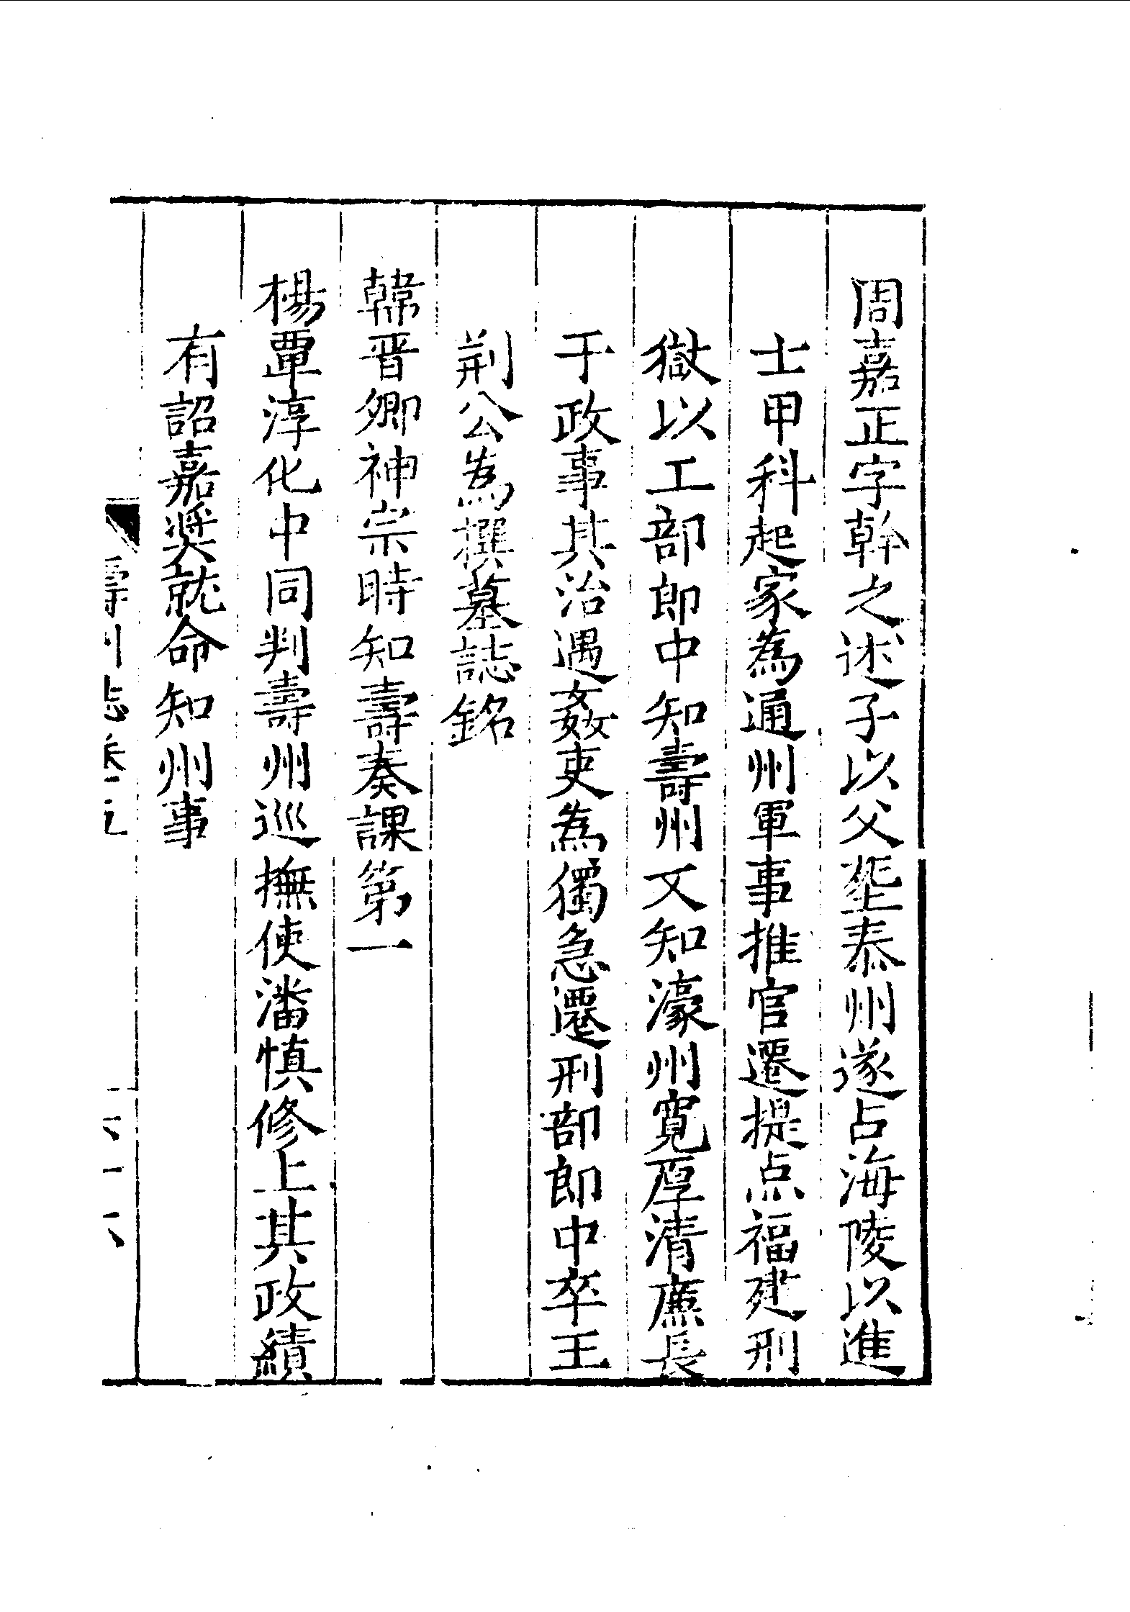 周嘉正字幹之述子以父塟泰州遂占海陵以進
士甲科起家為通州軍事推官遷提点福建刑
獄以工部郎中知壽州又知濠州寛厚清廉長
于政事其治遇姦吏為獨急遷刑部郎中卒王
荆公為撰墓誌銘
韓晋卿神宗時知壽奏課第一
楊覃淳化中同判壽州巡撫使潘慎修上其政績
有詔嘉奬就命知州事
壽州志卷五